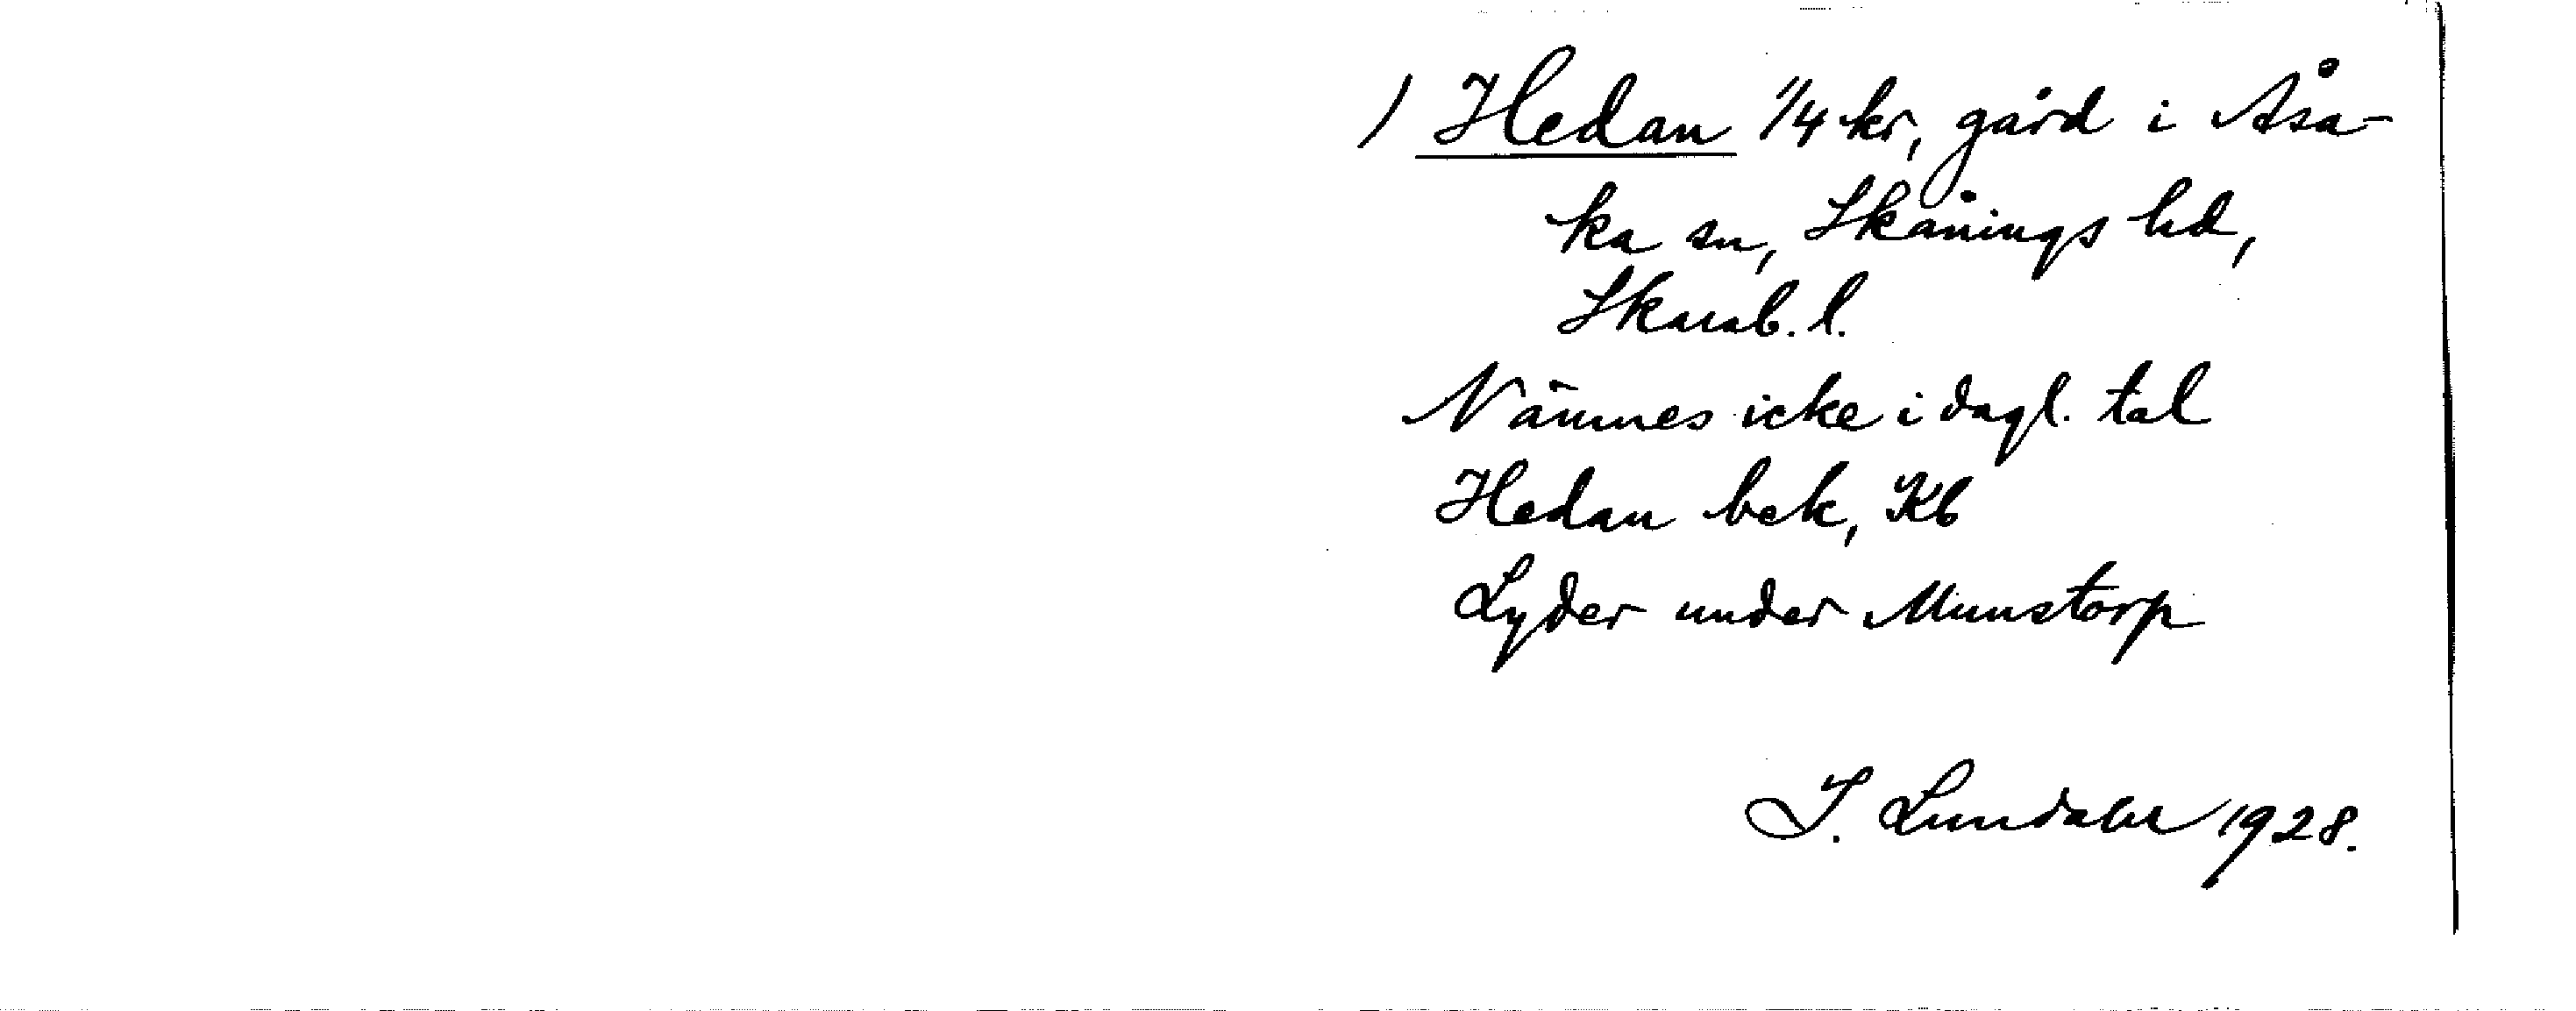 ) Hedan 1/4 kr, gård i Åsa-
ka sn, Skånings hd,
Skarab. l.
Nämnes icke i dagl. tal
Hedan bek, Kb
Lyder under Munstorp
I. Lundahl 1928.